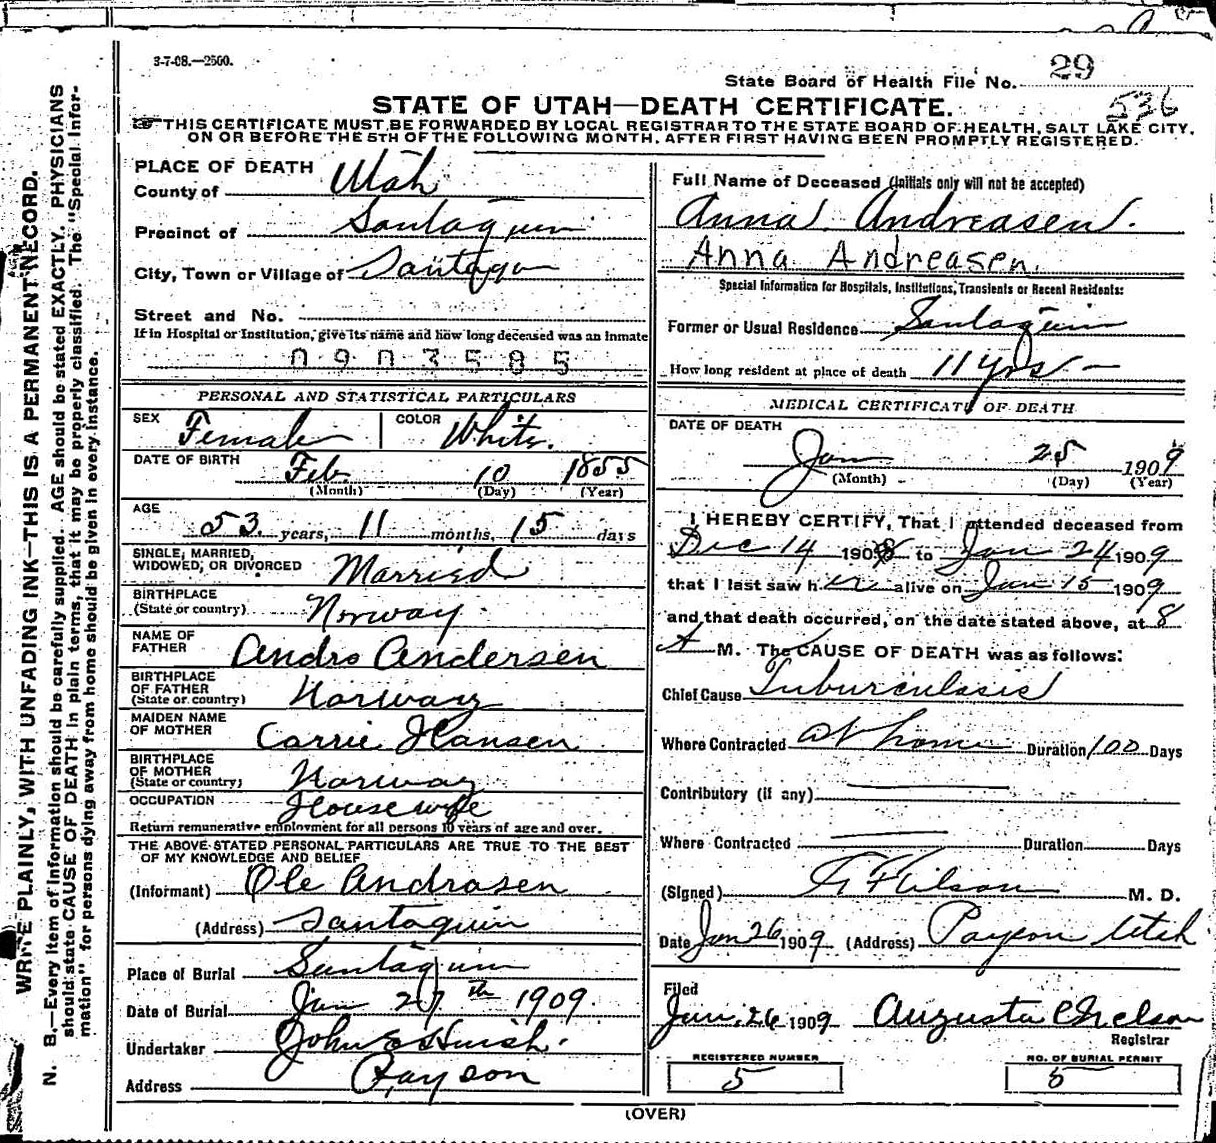 3-7-08.—2500.
State Board of Health File No. 29
536
STATE OF UTAH—DEATH CERTIFICATE.
THIS CERTIFICATE MUST BE FORWARDED BY LOCAL REGISTRAR TO THE STATE BOARD OF HEALTH, SALT LAKE CITY,
ON OR BEFORE THE 5TH OF THE FOLLOWING MONTH, AFTER FIRST HAVING BEEN PROMPTLY REGISTERED.
WRITE PLAINLY, WITH UNFADING INK—THIS IS A PERMANENT RECORD.
N. B.—Every item of information should be carefully supplied. AGE should be stated EXACTLY. PHYSICIANS
should state CAUSE OF DEATH in plain terms, that it may be properly classified. The "Special Infor-
mation" for persons dying away from home should be given in every instance.
PLACE OF DEATH
County of Utah
Precinct of Santaquin
City, Town or Village of Santaqu
Street and No.
If in Hospital or Institution, give its name and how long deceased was an inmate
0903585
PERSONAL AND STATISTICAL PARTICULARS
SEX Female COLOR White.
DATE OF BIRTH Feb 10 1855
(Month) (Day) (Year)
AGE
53 years, 11 months, 15 days
SINGLE, MARRIED,
WIDOWED, OR DIVORCED Married
BIRTHPLACE
(State or country) Norway
NAME OF
FATHER Andro Andersen
BIRTHPLACE
OF FATHER
(State or country) Norway
MAIDEN NAME
OF MOTHER Carrie Hansen
BIRTHPLACE
OF MOTHER
(State or country) Norway
OCCUPATION Housewife
Return remunerative employment for all persons 10 years of age and over.
THE ABOVE STATED PERSONAL PARTICULARS ARE TRUE TO THE BEST
OF MY KNOWLEDGE AND BELIEF
(Informant) Ole Andrasen
(Address) Santaquin
Place of Burial Santaquin
Date of Burial Jan 27th 1909.
Undertaker John E Huish.
Address Payson
Full Name of Deceased (Initials only will not be accepted)
Anna Andreasen.
Anna Andreasen.
Special Information for Hospitals, Institutions, Transients or Recent Residents:
Former or Usual Residence Santaquin
How long resident at place of death 11 yrs
MEDICAL CERTIFICATE OF DEATH
DATE OF DEATH
Jan 25 1909
(Month) (Day) (Year)
I HEREBY CERTIFY, That I attended deceased from
Dec 14 1908 to Jan 24 1909
that I last saw her alive on Jan 15 1909
and that death occurred, on the date stated above, at 8
A M. The CAUSE OF DEATH was as follows:
Chief Cause Tuburculasis
Where Contracted at home Duration 100 Days
Contributory (if any)
Where Contracted Duration Days
(Signed) M. D.
Date Jan 26 1909 (Address) Payson Utah
Filed
Jan. 26 1909 Augusta C Nelson
Registrar
REGISTERED NUMBER
5
NO. OF BURIAL PERMIT
5
(OVER)